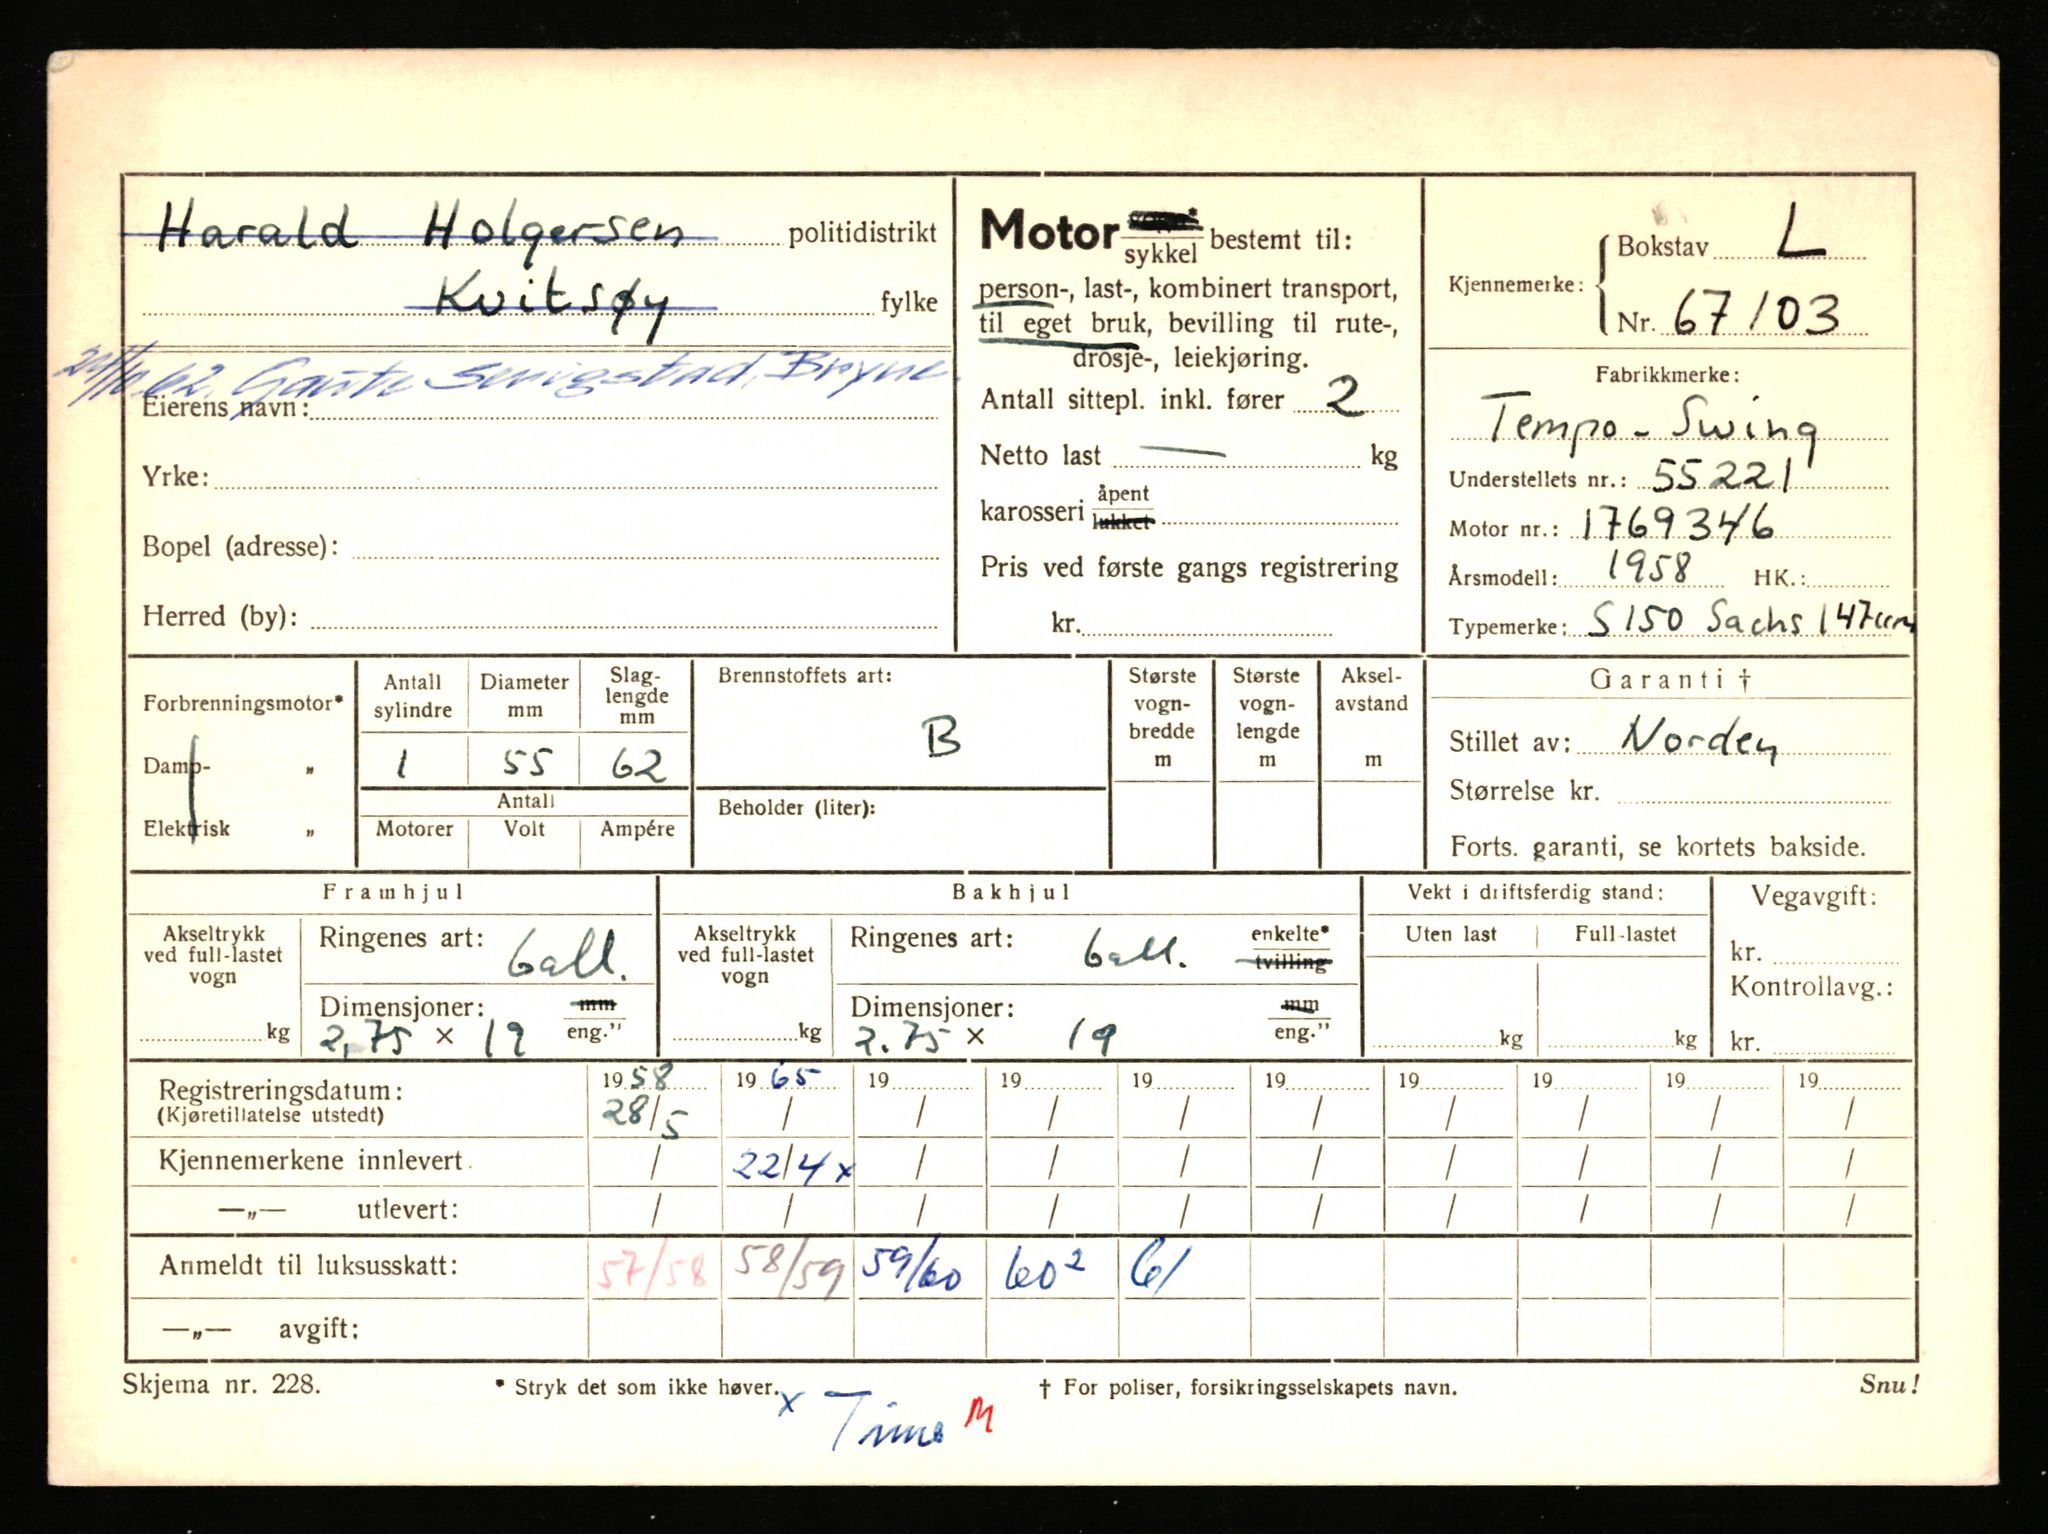 Harald Holgersen politidistrikt
Kvitsøy fylke
62. Gaute Serigstad, Bryne.
Eierens navn:
Yrke:
Bopel (adresse):
Herred (by):
Motor
sykkel bestemt til:
person-, last-, kombinert transport,
til eget bruk, bevilling til rute-,
drosje-, leiekjøring.
Antall sittepl. inkl. fører 2
Netto last — kg
karosseri åpent
lukket
Pris ved første gangs registrering
kr.
Kjennemerke: Bokstav L
Nr. 67103
Fabrikkmerke:
Tempo - Swing
Understellets nr.: 55221
Motor nr.: 1769346
Årsmodell: 1958 HK.:
Typemerke: S 150 Sachs 147ccm
Forbrenningsmotor*
Damp- „
Elektrisk „
Antall sylindre Diameter mm Slaglengde mm
1 55 62
Antall
Motorer Volt Ampére
Brennstoffets art:
B
Beholder (liter):
Største vognbredde m
Største vognlengde m
Akselavstand m
Garanti †
Stillet av: Norden
Størrelse kr.
Forts. garanti, se kortets bakside.
Framhjul
Akseltrykk ved full-lastet vogn
kg
Ringenes art: ball.
Dimensjoner: mm
2,75 × 19 eng."
Bakhjul
Akseltrykk ved full-lastet vogn
kg
Ringenes art: ball. enkelte*
tvilling
Dimensjoner: mm
2.75 × 19 eng."
Vekt i driftsferdig stand:
Uten last Full-lastet
kg kg
Vegavgift:
kr.
Kontrollavg.:
kr.
Registreringsdatum: 1958 1965 19 19 19 19 19 19 19 19
(Kjøretillatelse utstedt) 28/5 / / / / / / / / /
Kjennemerkene innlevert. / 22/4 x / / / / / / / /
—„— utlevert: / / / / / / / / / /
Anmeldt til luksusskatt: 57/58 58/59 59/60 60² 61
—„— avgift:
Skjema nr. 228. * Stryk det som ikke høver. † For poliser, forsikringsselskapets navn. Snu!
x Time M